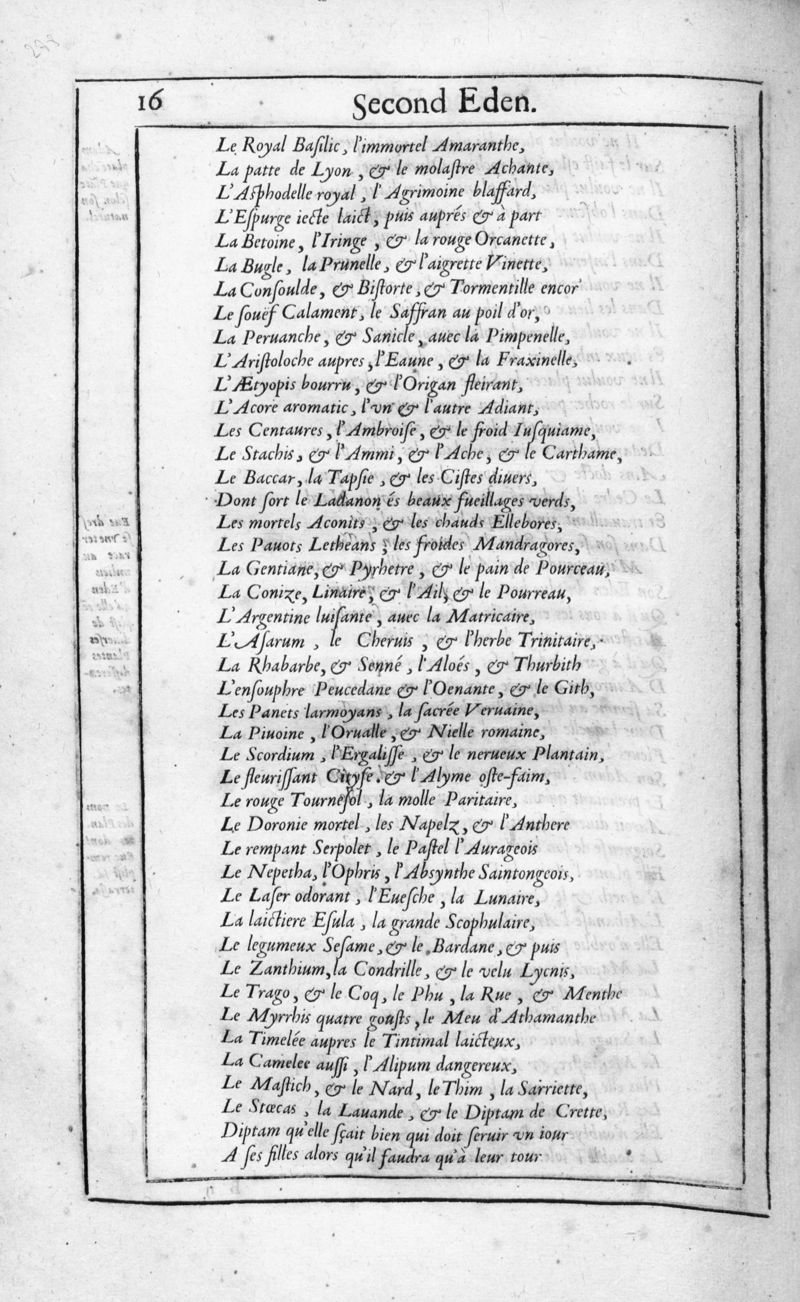 16 Second Eden.
Le Royal Baſilic, l'immortel Amaranthe,
La patte de Lyon, & le molaſtre Achante,
L'Aſphodelle royal, l'Agrimoine blaffard,
L'Eſpurge iecte laict, puis auprés & à part
La Betoine, l'Iringe, & la rouge Orcanette,
La Bugle, la Prunelle, & l'aigrette Vinette,
La Conſoulde, & Biſtorte, & Tormentille encor
Le ſouëf Calament, le Saffran au poil d'or,
La Peruanche, & Sanicle, auec la Pimpenelle,
L'Ariſtoloche aupres, l'Eaune, & la Fraxinelle,
L'Ætyopis bourru, & l'Origan fleirant,
L'Acore aromatic, l'vn & l'autre Adiant,
Les Centaures, l'Ambroiſe, & le froid Iuſquiame,
Le Stachis, & l'Ammi, & l'Ache, & le Carthame,
Le Baccar, la Tapſie, & les Ciſtes diuers,
Dont ſort le Ladanon és beaux fueillages verds,
Les mortels Aconits, & les chauds Ellebores,
Les Pauots Letheans, les froides Mandragores,
La Gentiane, & Pyrhetre, & le pain de Pourceau,
La Conize, Linaire, & l'Ail, & le Pourreau,
L'Argentine luiſante, auec la Matricaire,
L'Aſarum, le Cheruis, & l'herbe Trinitaire,
La Rhabarbe, & Senné, l'Aloés, & Thurbith
L'enſouphre Peucedane & l'Oenante, & le Gith,
Les Panets larmoyans, la ſacrée Veruaine,
La Piuoine, l'Orualle, & Nielle romaine,
Le Scordium, l'Ergaliſſe, & le nerueux Plantain,
Le fleuriſſant Cityſe, & l'Alyme oſte-faim,
Le rouge Tourneſol, la molle Paritaire,
Le Doronie mortel, les Napelz, & l'Anthere
Le rempant Serpolet, le Paſtel l'Aurageois
Le Nepetha, l'Ophris, l'Absynthe Saintongeois,
Le Laſer odorant, l'Eueſche, la Lunaire,
La laictiere Eſula, la grande Scophulaire,
Le legumeux Seſame, & le Bardane, & puis
Le Zanthium, la Condrille, & le velu Lycnis,
Le Trago, & le Coq, le Phu, la Rue, & Menthe
Le Myrrhis quatre gouſts, le Meu d'Athamanthe
La Timelée aupres le Tintimal laicteux,
La Camelee auſſi, l'Alipum dangereux,
Le Maſtich, & le Nard, le Thim, la Sarriette,
Le Stœcas, la Lauande, & le Diptam de Crette,
Diptam qu'elle ſçait bien qui doit ſeruir vn iour
A ſes filles alors qu'il faudra qu'à leur tour